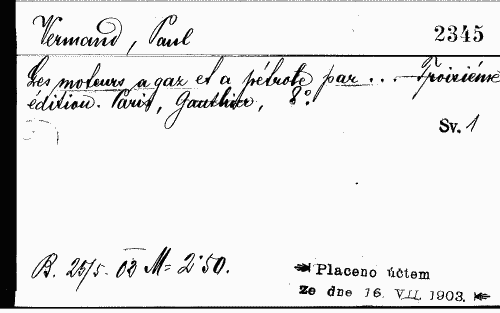 Vermand, Paul
2345
Les moteurs a gaz et a pétrole par ... — Troisiéme
édition. Paris, Gauthier, 8°.
Sv. 1
B. 25/5. 03 M= 2·50.
Placeno účtem
ze dne 16. VII. 1903.